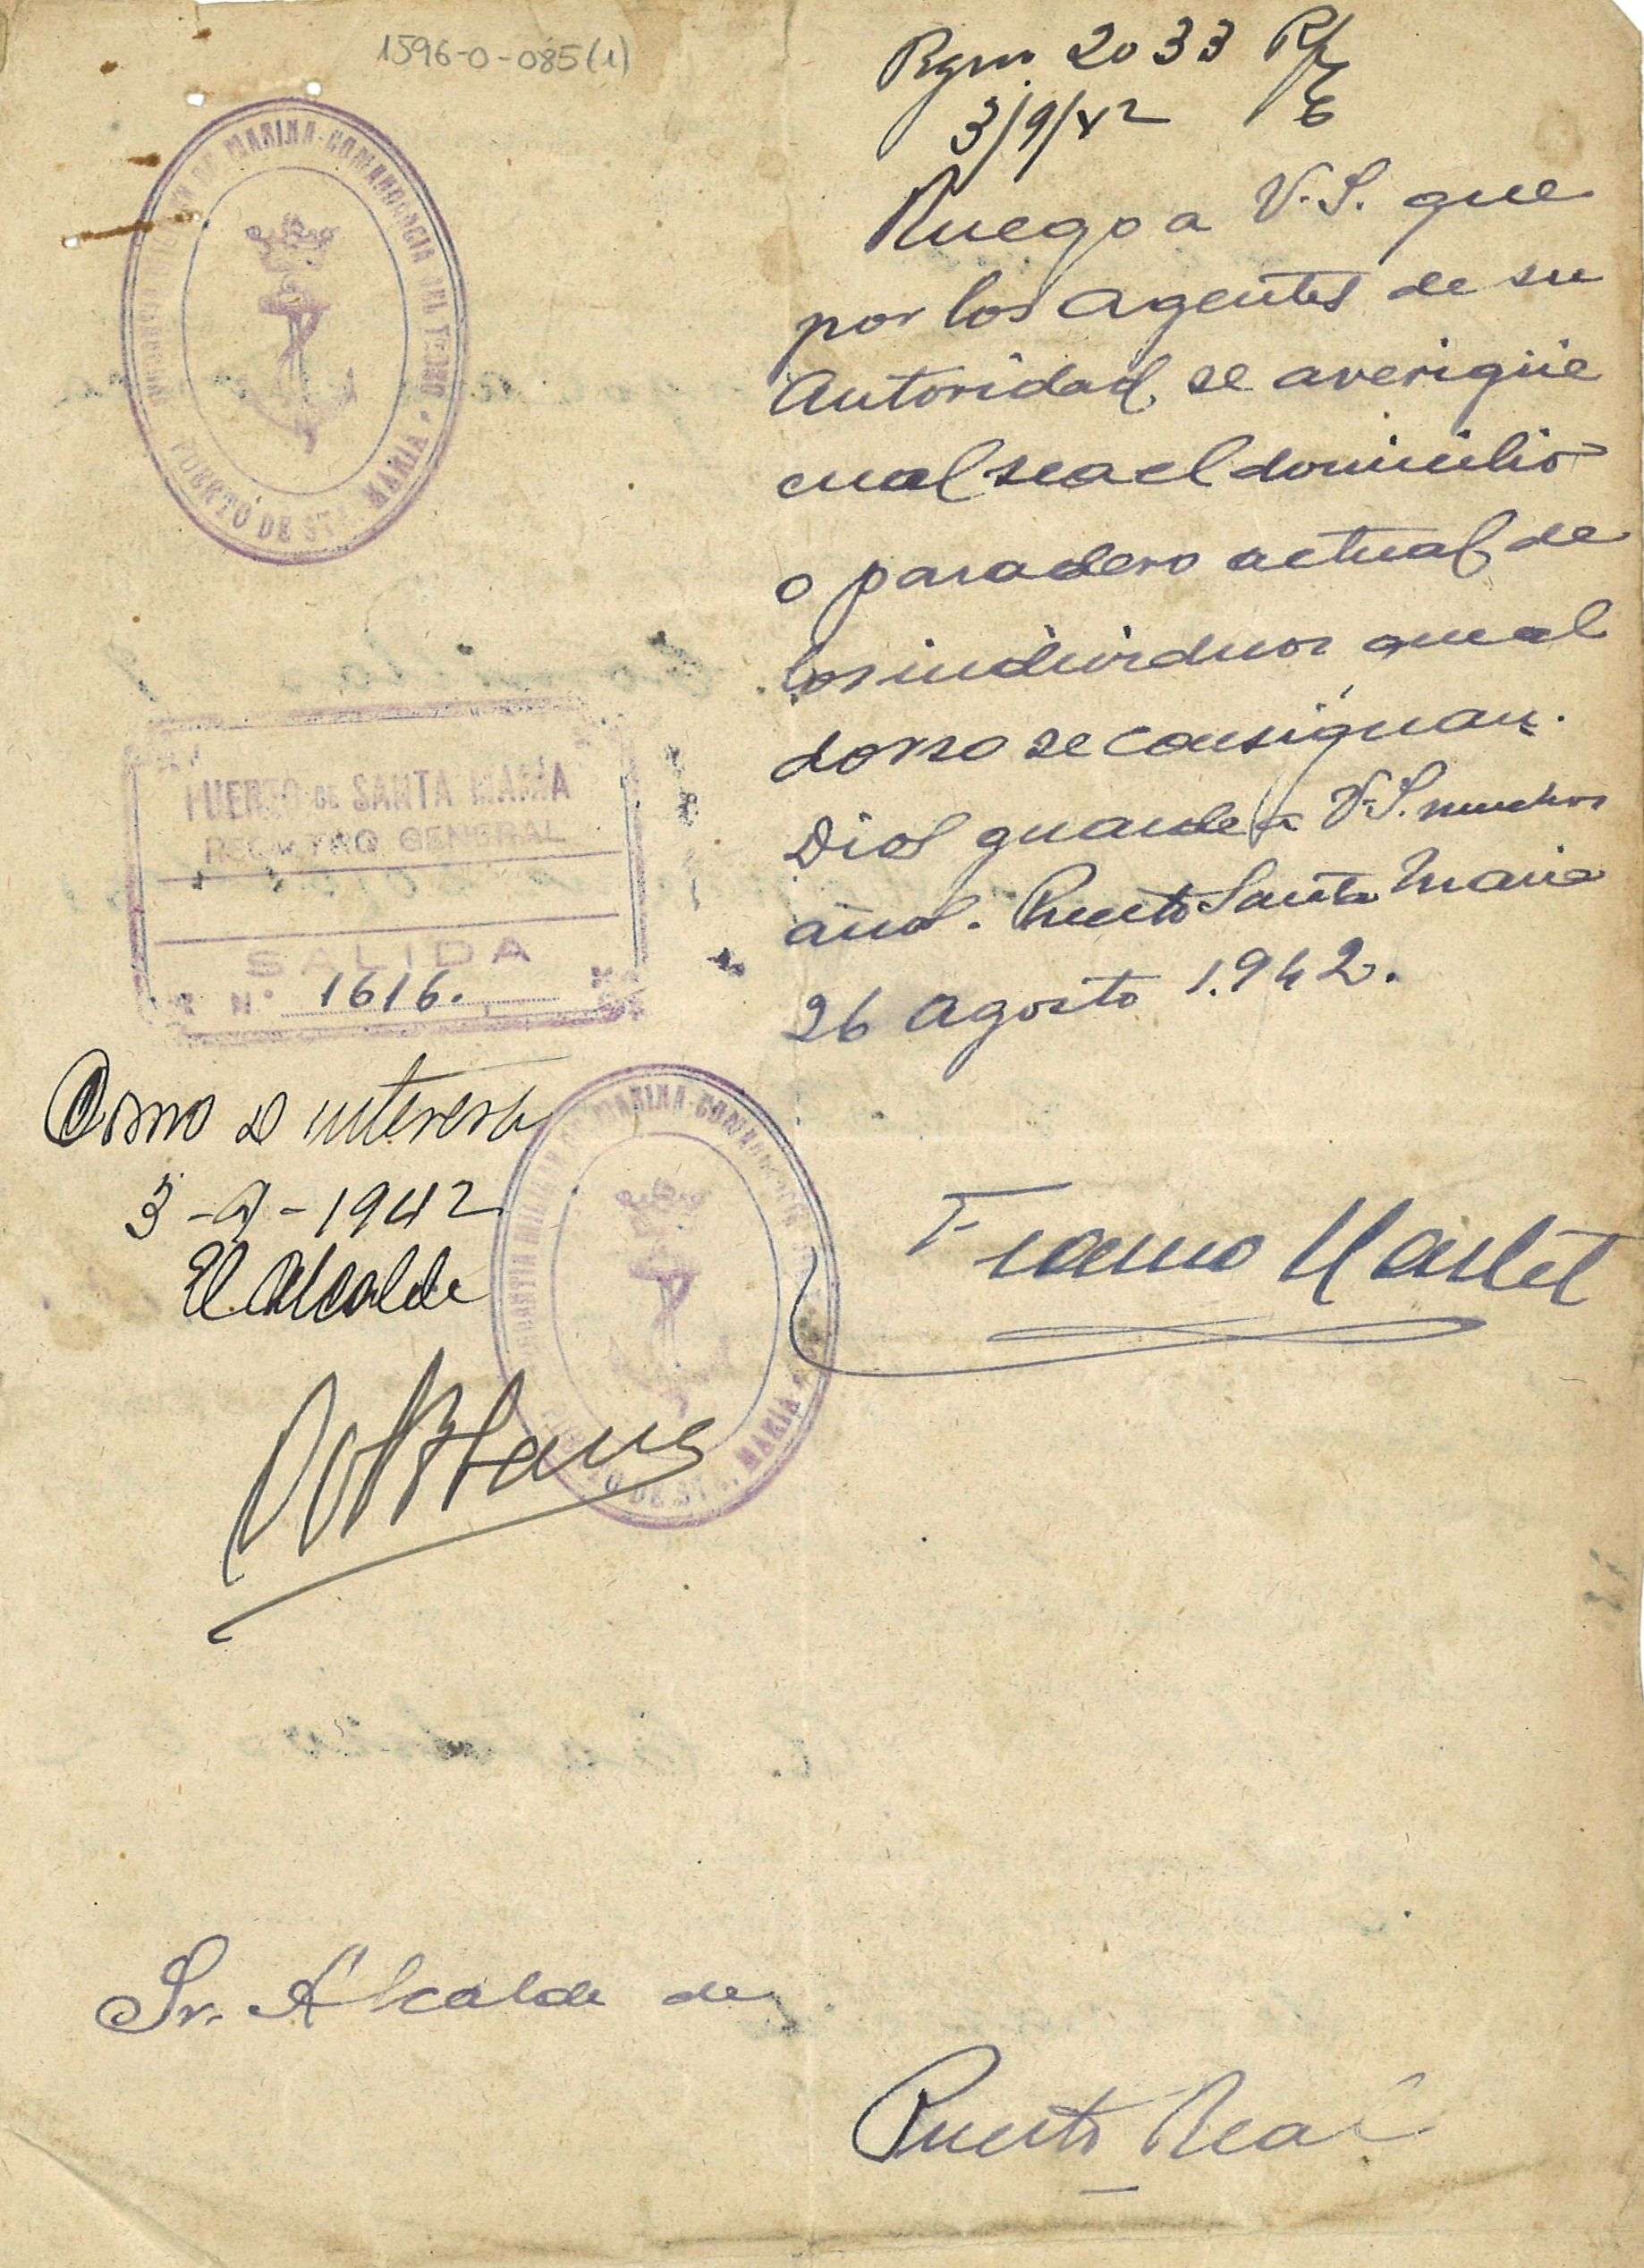 1596-0-085(1)
2033
3/9/42
Ruego a V.S. que
por los agentes de su
Autoridad, se averigüe
cual sea el domicilio
o paradero actual de
los individuos que al
dorso se consignan.
Dios guarde a V.S. muchos
años. Puerto Santa Maria
26 Agosto 1.942.
MARINA-COMANDANCIA DEL TERCIO
PUERTO DE STA. MARIA
PUERTO DE SANTA MARIA
REGISTRO GENERAL
SALIDA
N.° 1616.
Como se interesa
3-9-1942
El Alcalde
MILITAR DE MARINA-COMANDANCIA
PUERTO DE STA. MARIA
Sr. Alcalde de
Puerto Real